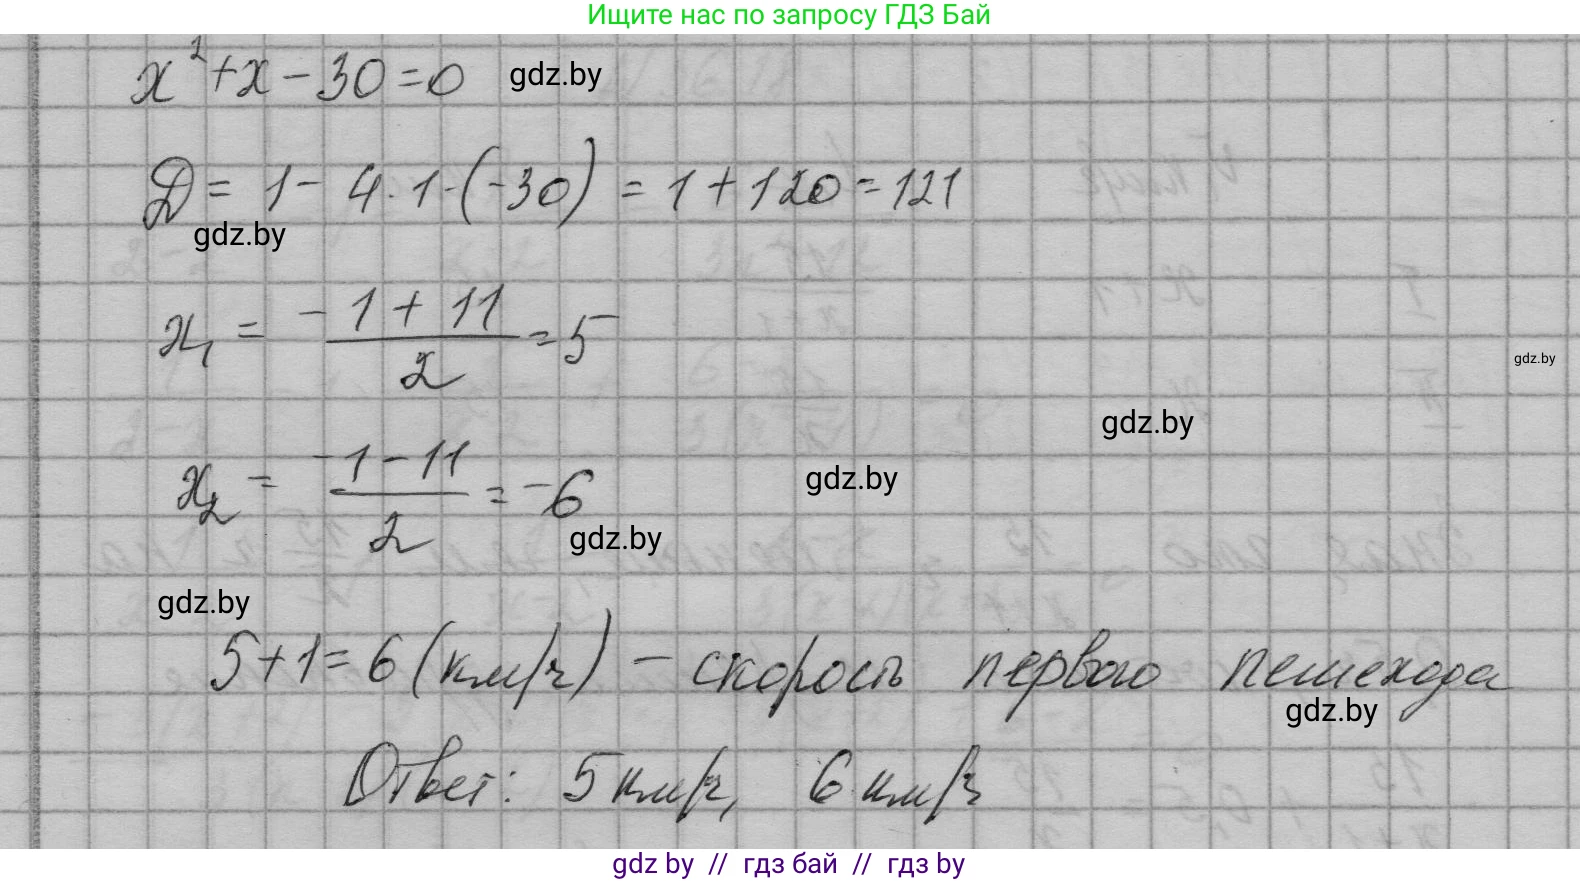 Ищите нас по запросу ГДЗ Бай
x² + x - 30 = 0 gdz.by
Д = 1 - 4 · 1 · (-30) = 1 + 120 = 121
gdz.by
x₁ = (-1 + 11)/2 = 5
gdz.by
gdz.by
x₂ = (-1 - 11)/2 = -6
gdz.by
gdz.by
gdz.by
5 + 1 = 6 (км/ч) - скорость первого пешехода
gdz.by
Ответ: 5 км/ч, 6 км/ч
gdz by // гдз бай // гдз by